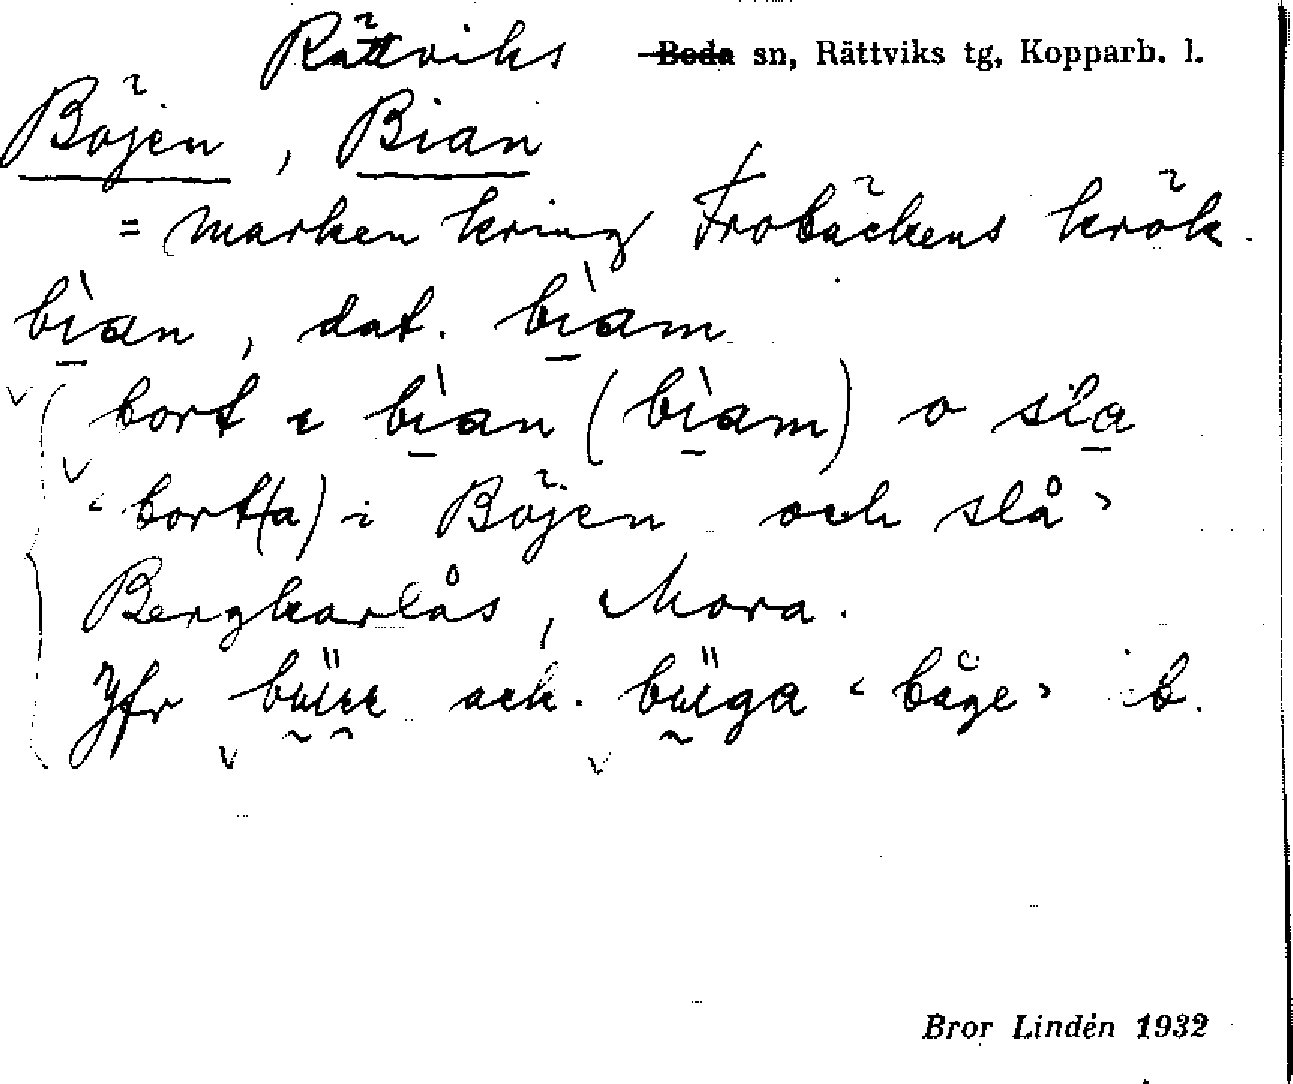 Rättviks ~~Boda~~ sn, Rättviks tg, Kopparb. l.
Böjen, Bian
= marken kring Frobäckens krök.
bì̠an, dat. bì̠am
bort i bì̠an (bì̠am) o sla̠
‹bort(a) i Böjen och slå›
Bergkarlås, Mora.
Jfr ack. ‹båge› ib.
Bror Lindén 1932